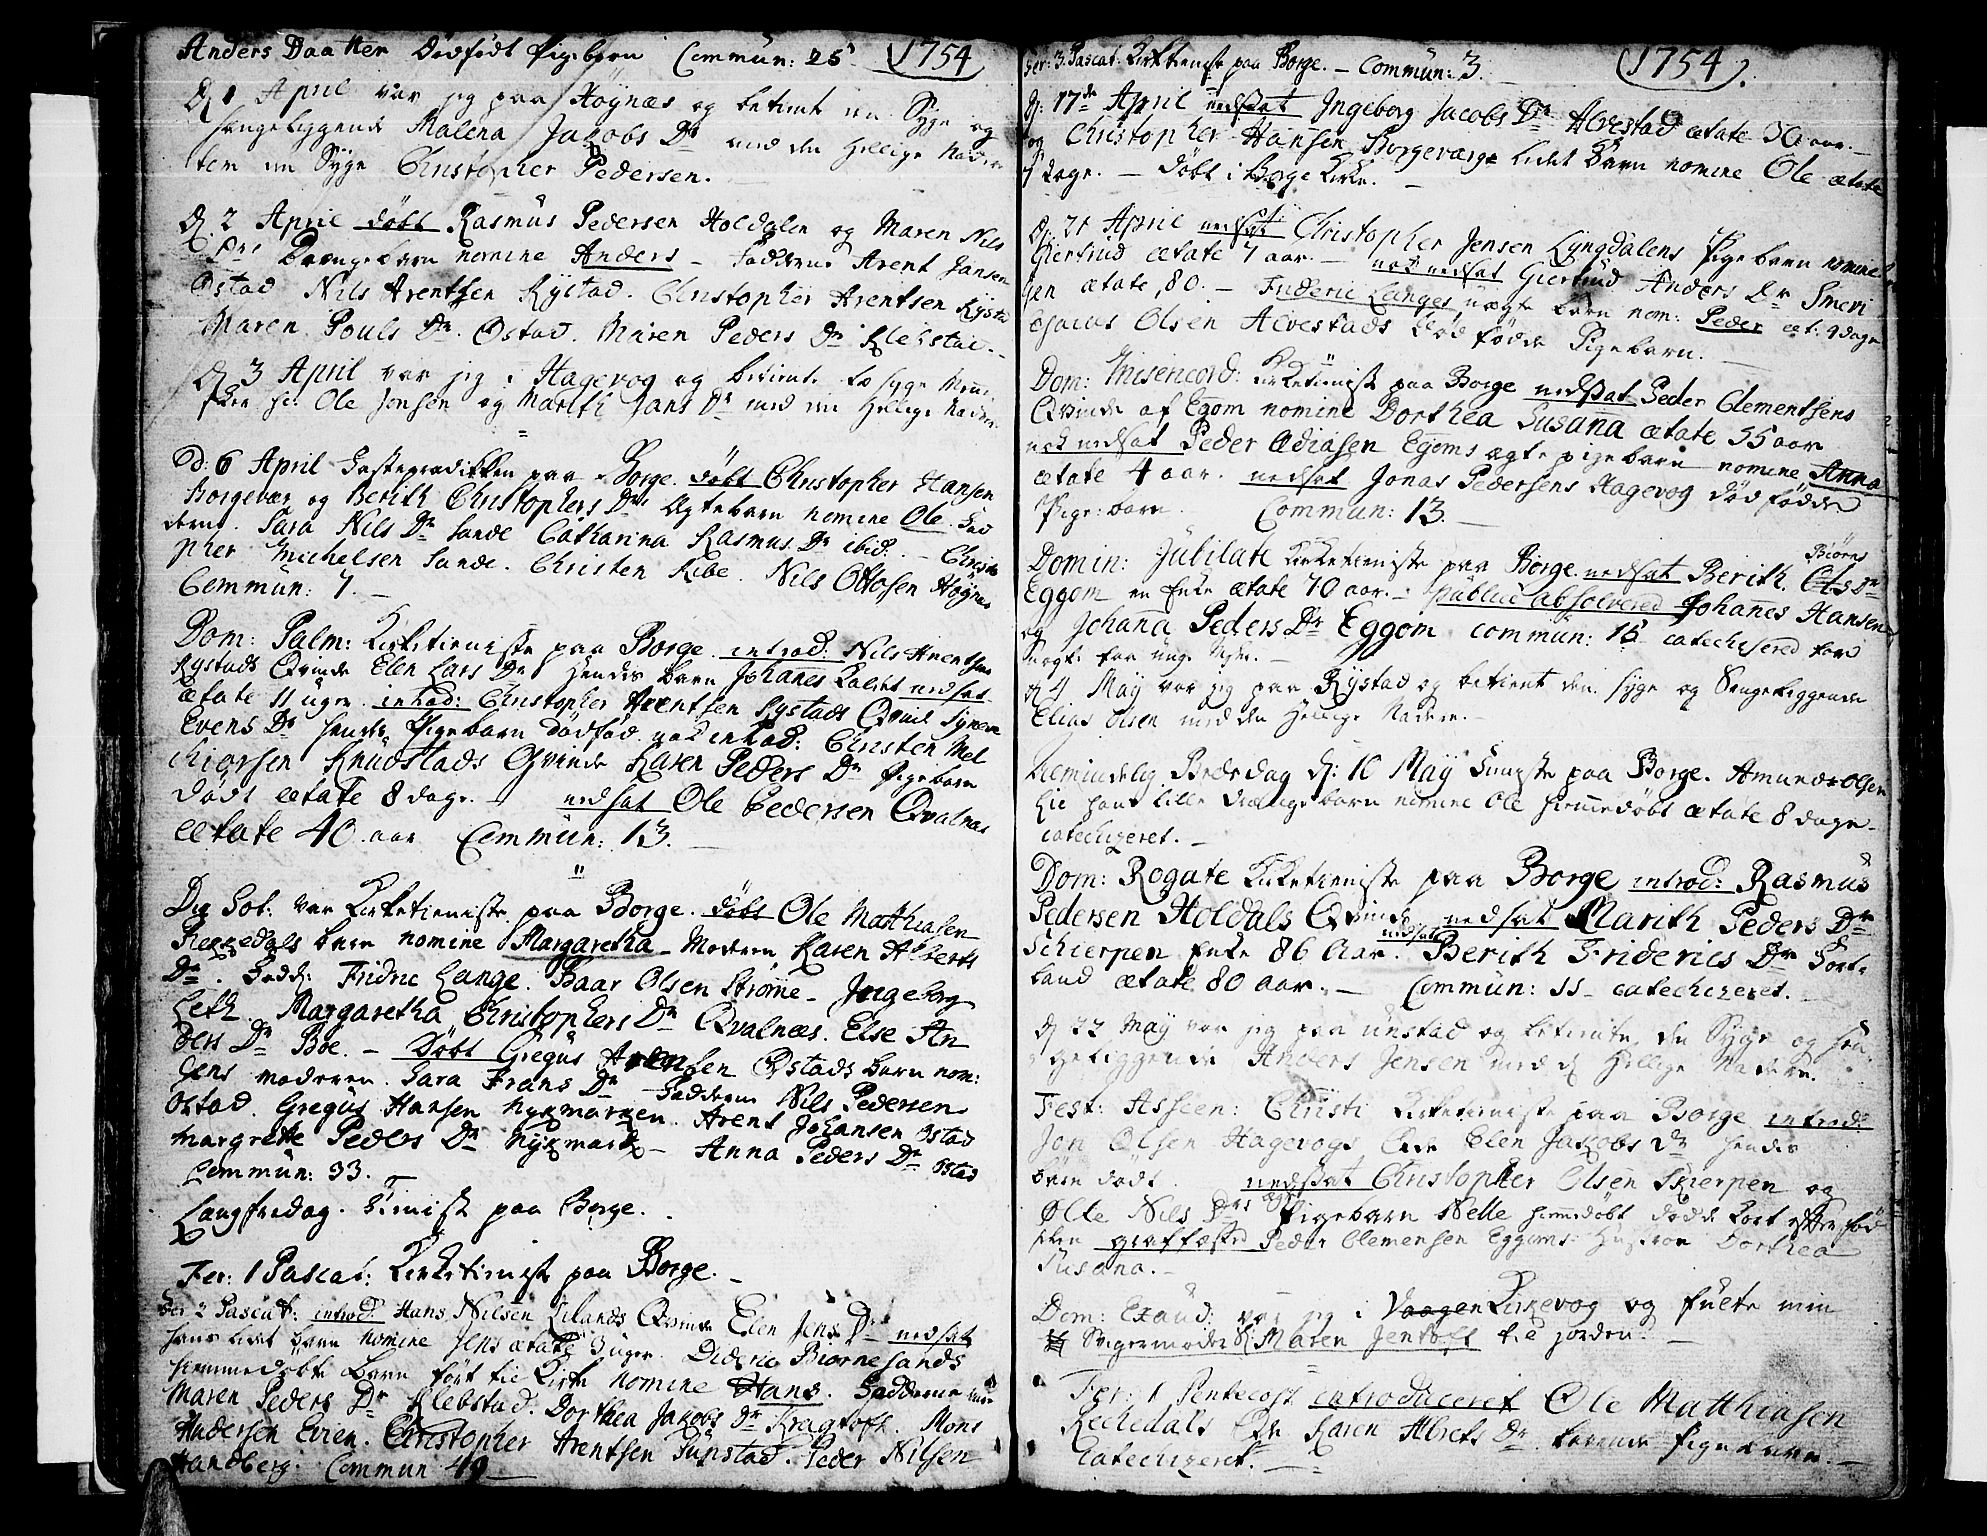 Anders Daatter Dødfødt Pigebørn Commun: 25 1754
D: 1 April var jeg paa Höynæs og betient en Syge og
sengeliggende Malena Jacobs Dr med den hellige Nadere
item en Syge Christopher Pedersen.
D. 2 April döbt Rasmus Pedersen Holdalen og Maren Nils
Dr Drængebarn nomine Anders - Fadderne Arent Jansen
Ostad Nils Arentsen Rystad. Christopher Arentsen Rystad
Maren Pouls Dr. Ostad. Maren Peders Dr Klebstad.
D 3 April var jeg i Hagevog og betiente to syge Menni
sker sc: Ole Jonsen og Marith Jans Dr med den Hellige Nadere
D: 6 April Fastepredikken paa Borge. döbt Christopher Hansen
Borgevær og Berith Christophers Dr Ægtebarn nomine Ole. Fad
derne. Sara Nils Dr Sande Catharina Rasmus Dr ibid. - Christo
pher Michelsen Sande. Christen Ribe. Nils Ottosen Höynæs
Commun: 7.
Dom: Palm: Kirketieniste paa Borge. introd: Nils Arentsen
Rystads Qvinde Elen Lars Dr Hendes barn Johannes kaldet nedsat
ætate 11 uger. introd: Christopher Arentsen Rystads Qvinde
Evens Dr hendes Pigebarn dödfød. nok introd: Christen Mel
chiorsen Knudstads Qvinde Karen Peders Dr Pigebarn
dödt ætate 8 dage. nedsat Ole Pedersen Qvalnæs
ætate 40 aar Commun: 13.
Die Sot: var Kirketieniste paa Borge. döbt Ole Matthiasen
Rekkedals barn nomine Margaretha - Moderen Karen Alberts
Dr. Fadd: Fridric Lange. Baar Olsen Ströme - Ingeborg
Leth. Margaretha Christophers Dr Qvalnæs. Else An
ders Dr Boe. - Döbt Gregus Arentsen Ostads barn nom:
Jens moderen. Sara Frans Dr Fadderne Nils Pedersen
Ostad. Gregus Hansen Nykmarken. Arent Johansen Ostad
Margrethe Peders Dr Nykmark - Anna Peders Dr Ostad
Commun: 33.
Langfredag. Tienist paa Borge.
Fer: 1 Pascat: Kirketienist paa Borge.
Fer 2 Pascat: introd. Hans Nilsen Lilands Qvinde Elen Jens Dr nedsat
hans lidet barn nomine Jens ætate 3 uger. Dideric Biörnesands
hiemmedöbte Barn fört til Kirke nomine Hans. Fadderne
Maren Peders Dr Klebstad. Dorthea Jacobs Dr Kragtoft. Mons
Andersen Evien. Christopher Arentsen Tunstad. Peder Nilsen
Handberg. Commun 49
Fer: 3. Pascat: Kirketieniste paa Borge. - Commun: 3. 1754
D: 17de April nedsat Ingeborg Jacobs Dr Alvestad ætate aar.
og Christopher Hansen Borgeværs lidet Barn nomine Ole ætate
dage. - Döbt i Borge Kirke.
D: 21 April nedsat Christopher Jensen Lyngdalens Pigebarn nomine
Giertrud ætate 7 aar. - nok nedsat Giertrud Anders Dr Smeri
gen ætate, 80. - Frideric Langes uægte barn nom: Peder æt: 9 dage
Jacobs Olsen Alvestads dödfödde Pigebarn.
Dom: Misericord: Kirketienist paa Borge nedsat Peder Clementsens
Qvinde af Egom nomine Dorthea Susana ætate 55 aar
nok nedsat Peder Ediasen Egoms ægte pigebarn nomine Anna
ætate 4 aar. nedsat Jonas Pedersens Hagevog dödfödde
Pige:barn. Commun: 13.
Domin: Jubilate Kirketieniste paa Borge. nedsat Berith Ols Dr Biörns
Eggom en Enke ætate 70 aar. - publicé absolvered Johannes Hansen
og Johana Peders Dr Eggom. Commun: 15 catechisered for
Sorgte for unge Sjæle.
D 4 May var jeg paa Rystad og betient den syge og Sengeliggende
Elias Olsen med den Hellige Nadere.
Almindelig Bededag d: 10 May Tieniste paa Borge. Amund Olsen
Lie hans lille drænge barn nomine Ole hiemmedöbt ætate 8 dage.
catechizeret.
Dom: Rogate Kirketieniste paa Borge introd: Rasmus
Pedersen Holdals Qvinde nedsat Marith Peders Dr
Schierpen Enke 86 Aar. nedsat Berith Friderics Dr Fort-
land ætate 80 aar. - Commun: 11 - catechizeret.
D 22 May var jeg paa Unstad og betiente den Syge og sen
geliggende Anders Jensen med d Hellige Nadere.
Fest: Ascen: Christi Kirketieniste paa Borge introd:
Jon Olsen Hagevogs Qde Elen Jacobs Dr hendes
barn dödt. nedsat Christopher Olsen Skierpen og
Ølle Nils Drs ægte Pigebarn Nelle hiemedöbt döde kort efter föd
selen graffæsted Peder Clemensen Eggoms Hustroe Dorthea
Susana.
Dom: Exaud: var jeg i Vaagen Kirkevog og fulte min
Svigermoder Sl: Maren Jentoft til jorden.
Fer: 1 Pentecost introduceret Ole Matthiasen
Rechedals Qde Karen Alberts Dr levende Pigebarn.
Catechizeret.